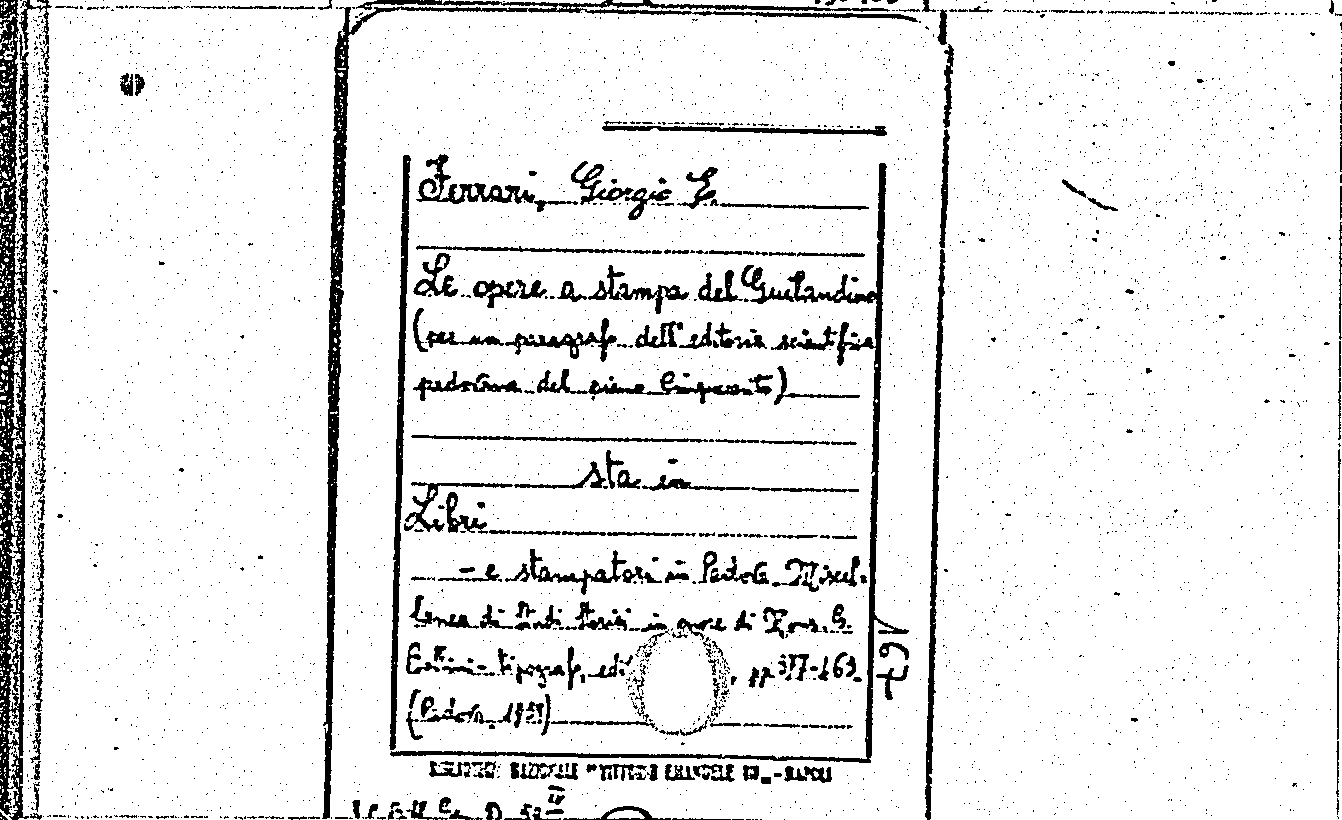 Ferrari, Giorgio E.
Le opere a stampa del Guilandino
(per un paragrafo dell'editoria scientifica
padovana del pieno Cinquecento)
sta in
Libri
- e stampatori in Padova. Miscel-
lanea di studi storici in onore di Mons. G.
Bellini - tipografo, edi , pp 377-463.
(Padova, 1959)
BIBLIOTECA NAZIONALE "VITTORIO EMANUELE III" - NAPOLI